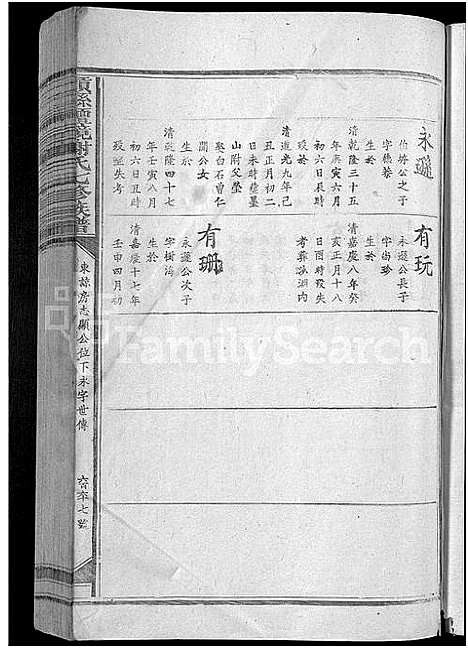 永遜
伯㛃公之子
字德泰
生於
清乾隆三十五
年庚寅六月
初六日辰時
歿於
清道光九年己
丑正月初二
日未時葬墨
山附父塋
娶白石曾仁
開公女
生於
清乾隆四十七
年壬寅八月
初六日丑時
歿葬失考
有玩
永遜公長子
字尚珍
生於
清嘉慶八年癸
亥正月十八
日酉時歿失
考葬湖內
有珊
永遜公次子
字樹海
生於
清嘉慶十七年
壬申四月初
謝氏七修族譜
東諒房志顯公位下永字世傳
FamilySearch